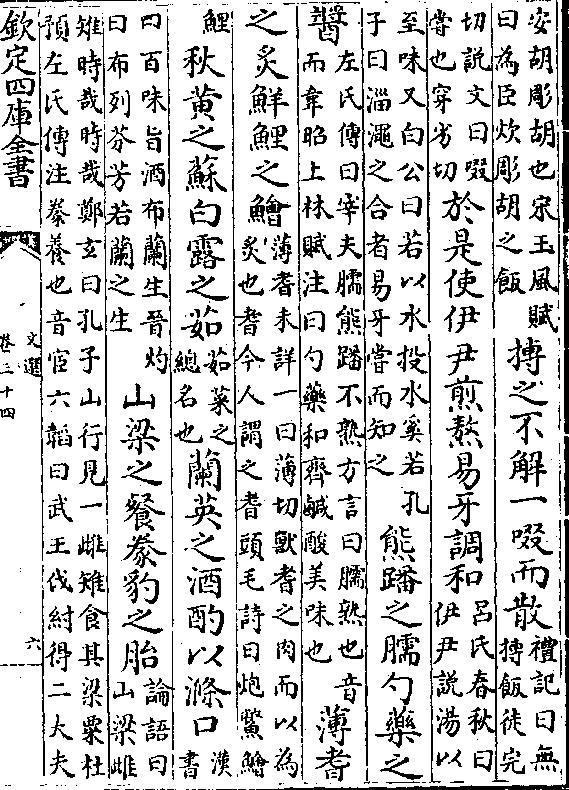 安胡彫胡也宋玉風賦曰為臣炊彫胡之飯摶之不解一啜而散禮記曰無摶飯徒完
切説文曰啜嘗也穿劣切於是使伊尹煎熬易牙調和呂氏春秋曰伊尹説湯以
至味又白公曰若以水投水奚若孔子曰淄澠之合者易牙嘗而知之熊蹯之臑勺藥之
醬左氏傳曰宰夫臑熊蹯不熟方言曰臑熟也音而韋昭上林賦注曰勺藥和齊鹹酸美味也薄耆
之炙鮮鯉之鱠薄耆未詳一曰薄切獸耆之肉而以為炙也耆今人謂之耆頭毛詩曰炮鱉鱠
鯉秋黄之蘇白露之茹茹菜之總名也蘭英之酒酌以滌口漢書
曰百味旨酒布蘭生晉灼曰布列芬芳若蘭之生山梁之餐豢豹之胎論語曰山梁雌
雉時哉時哉鄭玄曰孔子山行見一雌雉食其梁粟杜預左氏傳注豢養也音宦六韜曰武王伐紂得二大夫
欽定四庫全書
文選
卷三十四
六